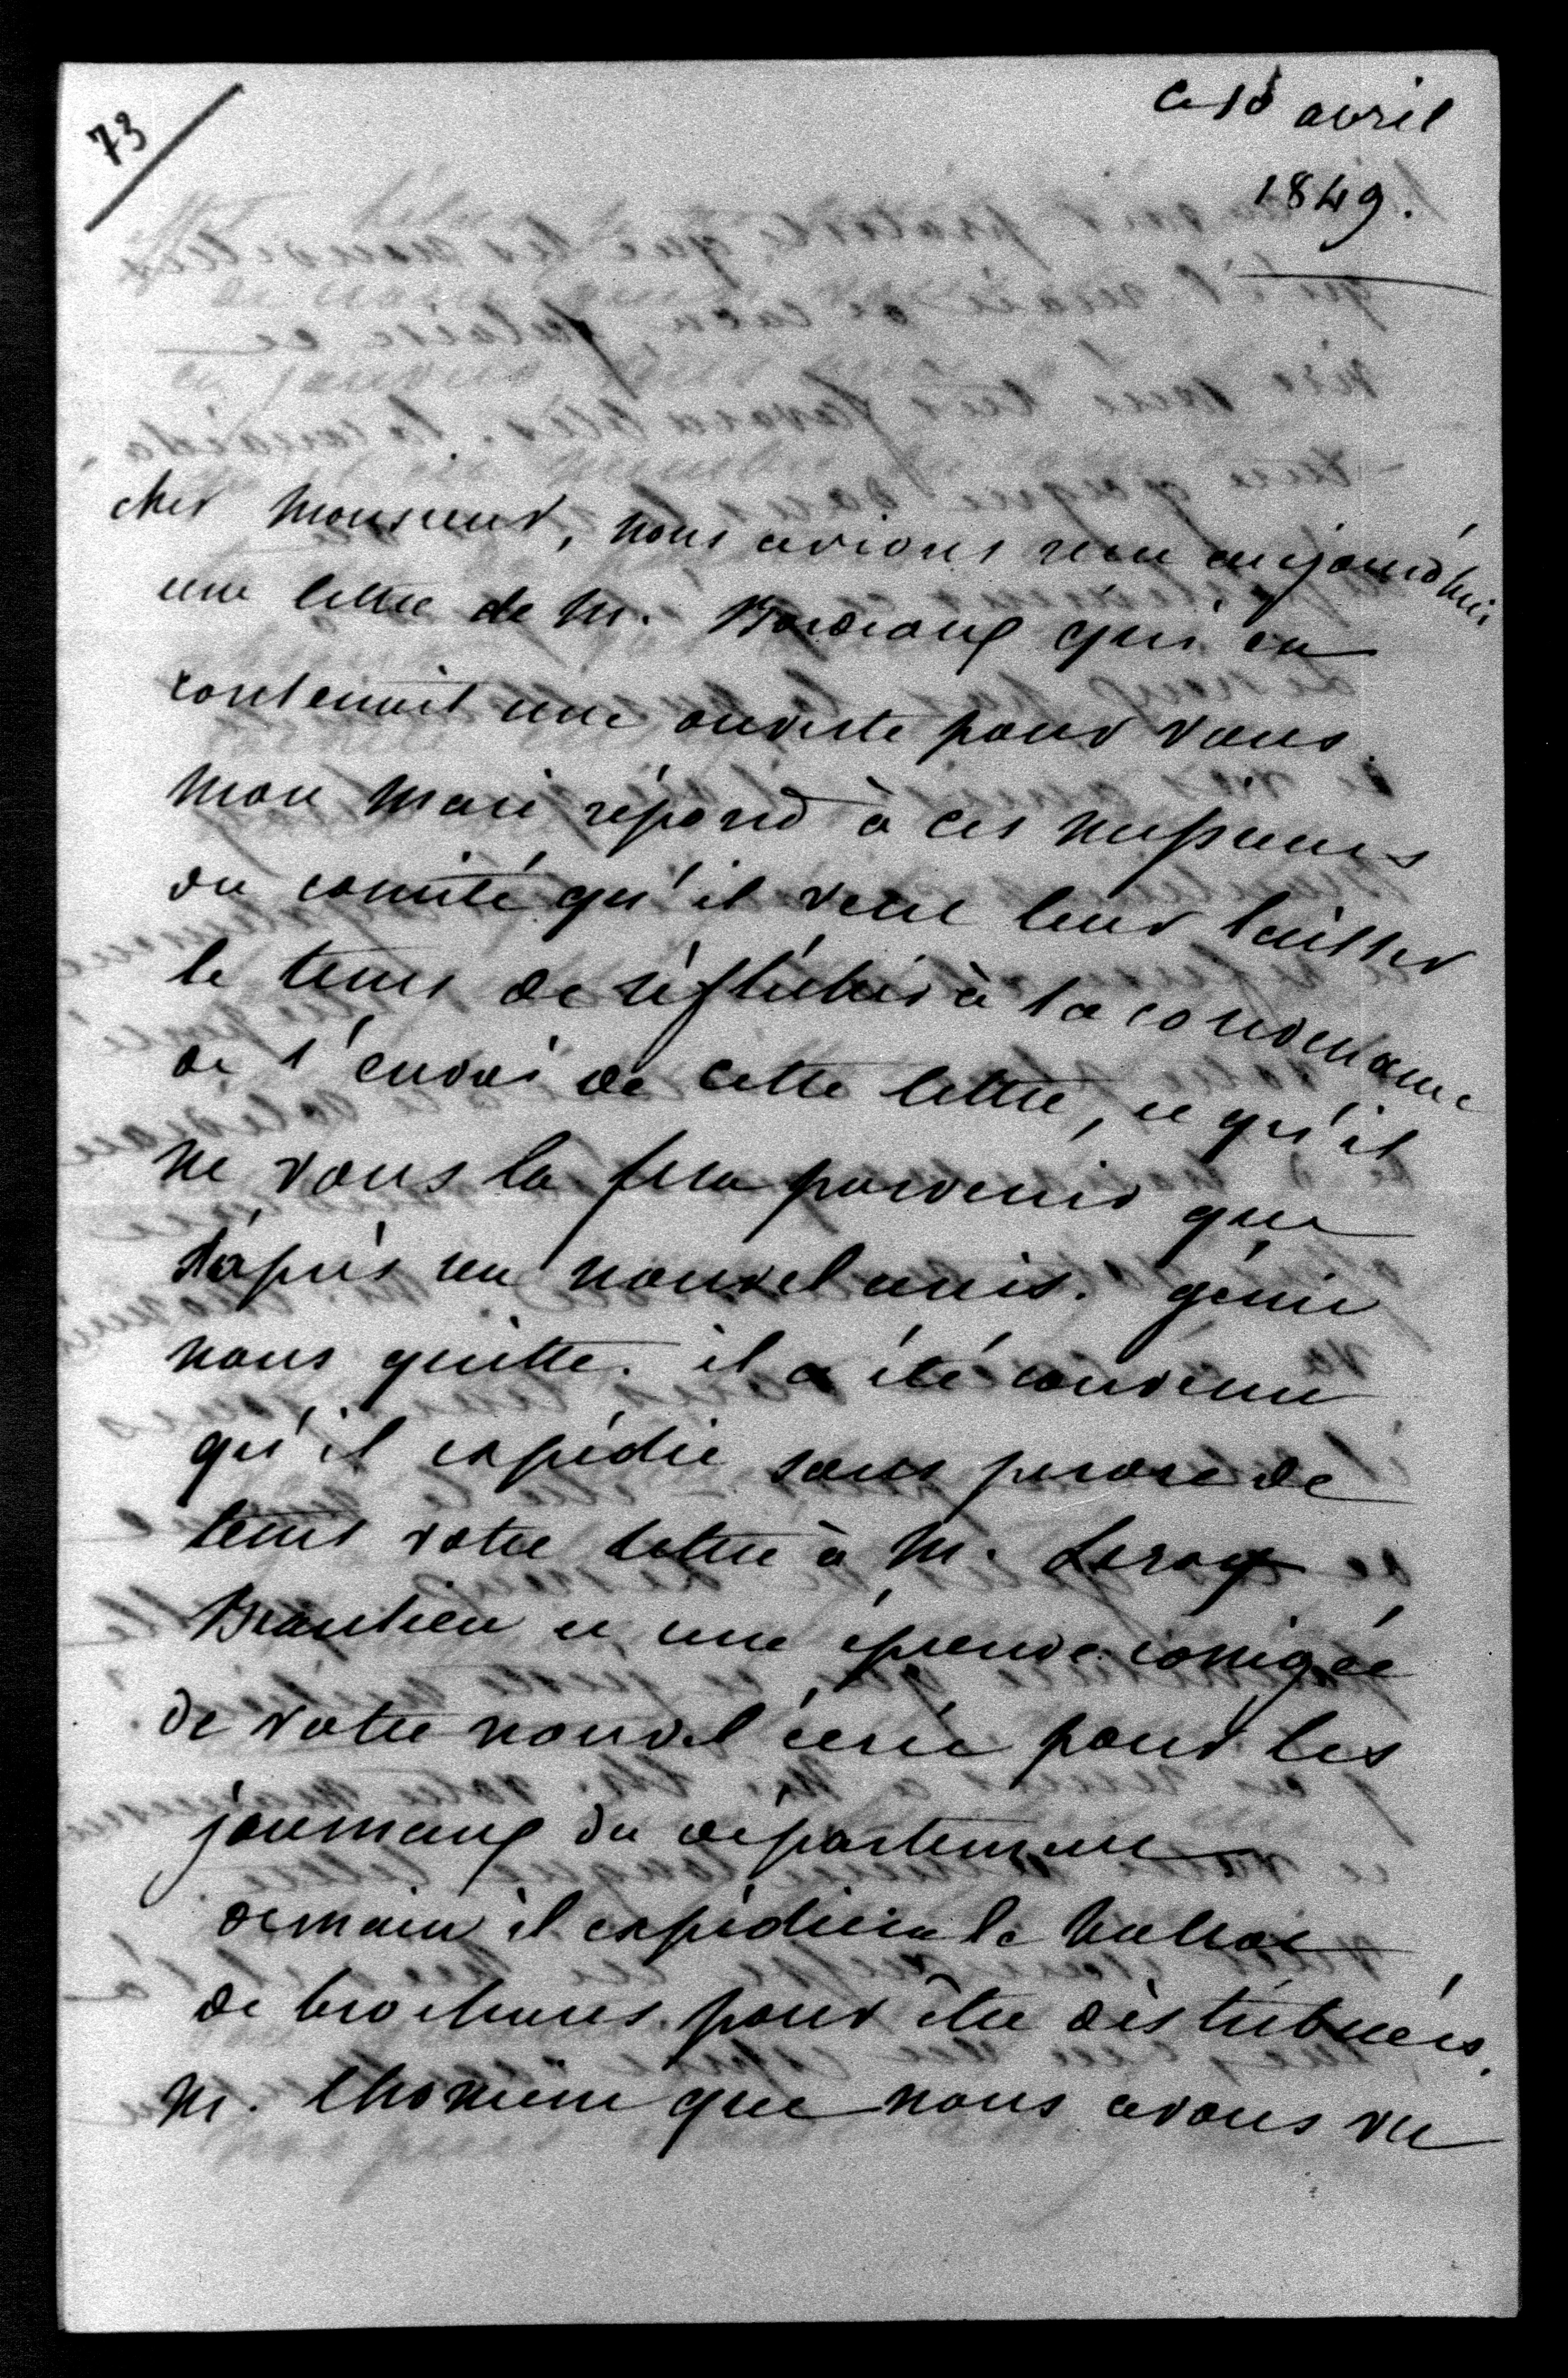 73
ce 18 avril
1849.
cher Monsieur, nous avions reçu aujourd'hui
une lettre de M. Bordeaux qui en
contenait une ouverte pour vous.
Mon mari répond à ces messieurs
du comité qu'il veut leur laisser
le tems de réfléchir à la convenance
de l'envoi de cette lettre, et qu'il
ne vous la fera parvenir que
d'après un nouvel avis. génie
nous quitte. il a été convenu
qu'il expédie sans perdre de
tems votre lettre à M. Leroy
Beaulieu et une épreuve corrigée
de votre nouvel écrit pour les
journaux du département
demain il expédiera le ballot
de brochures pour être distribuées.
M. Thomine que nous avons vu